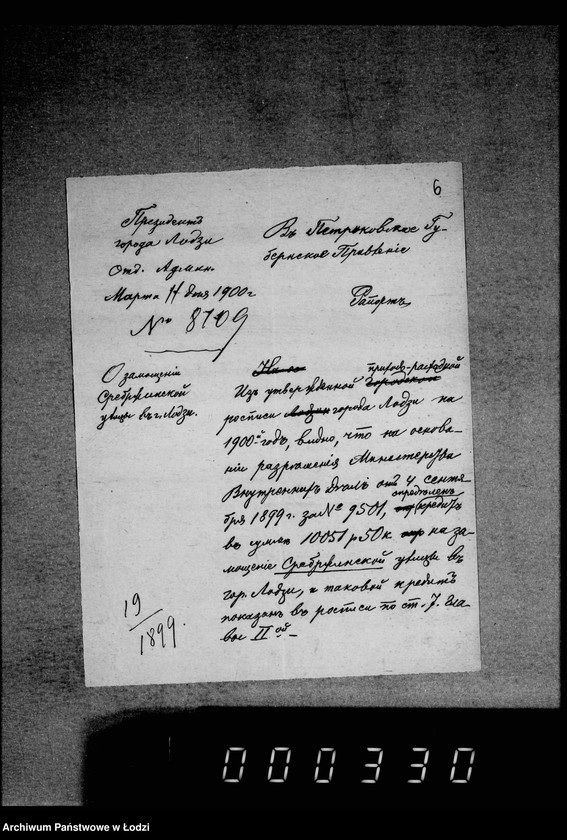 6
Президентъ
города Лодзи
Отд. Админ.
Марта 14 дня 1900 г
№ 8709
Въ Петроковское Гу-
бернское Правленіе
Рапортъ
О замощеніи
Сребржинской
улицы въ г. Лодзи.
приходо-расходной
Изъ утвержденной городской
росписи города Лодзи на
1900й годъ, видно, что на основа-
ніи разрѣшенія Министерства
Внутреннихъ Дѣлъ отъ 4 сентя-
опредѣленъ
бря 1899 г. за № 9501, кредитъ
въ суммѣ 10051 р 50 к на за-
мощеніе Сребржинской улицы въ
гор. Лодзи, и таковой кредитъ
показанъ въ росписи по ст. 7. Гла-
вы IIой
19
1899.
000330
Archiwum Państwowe w Łodzi